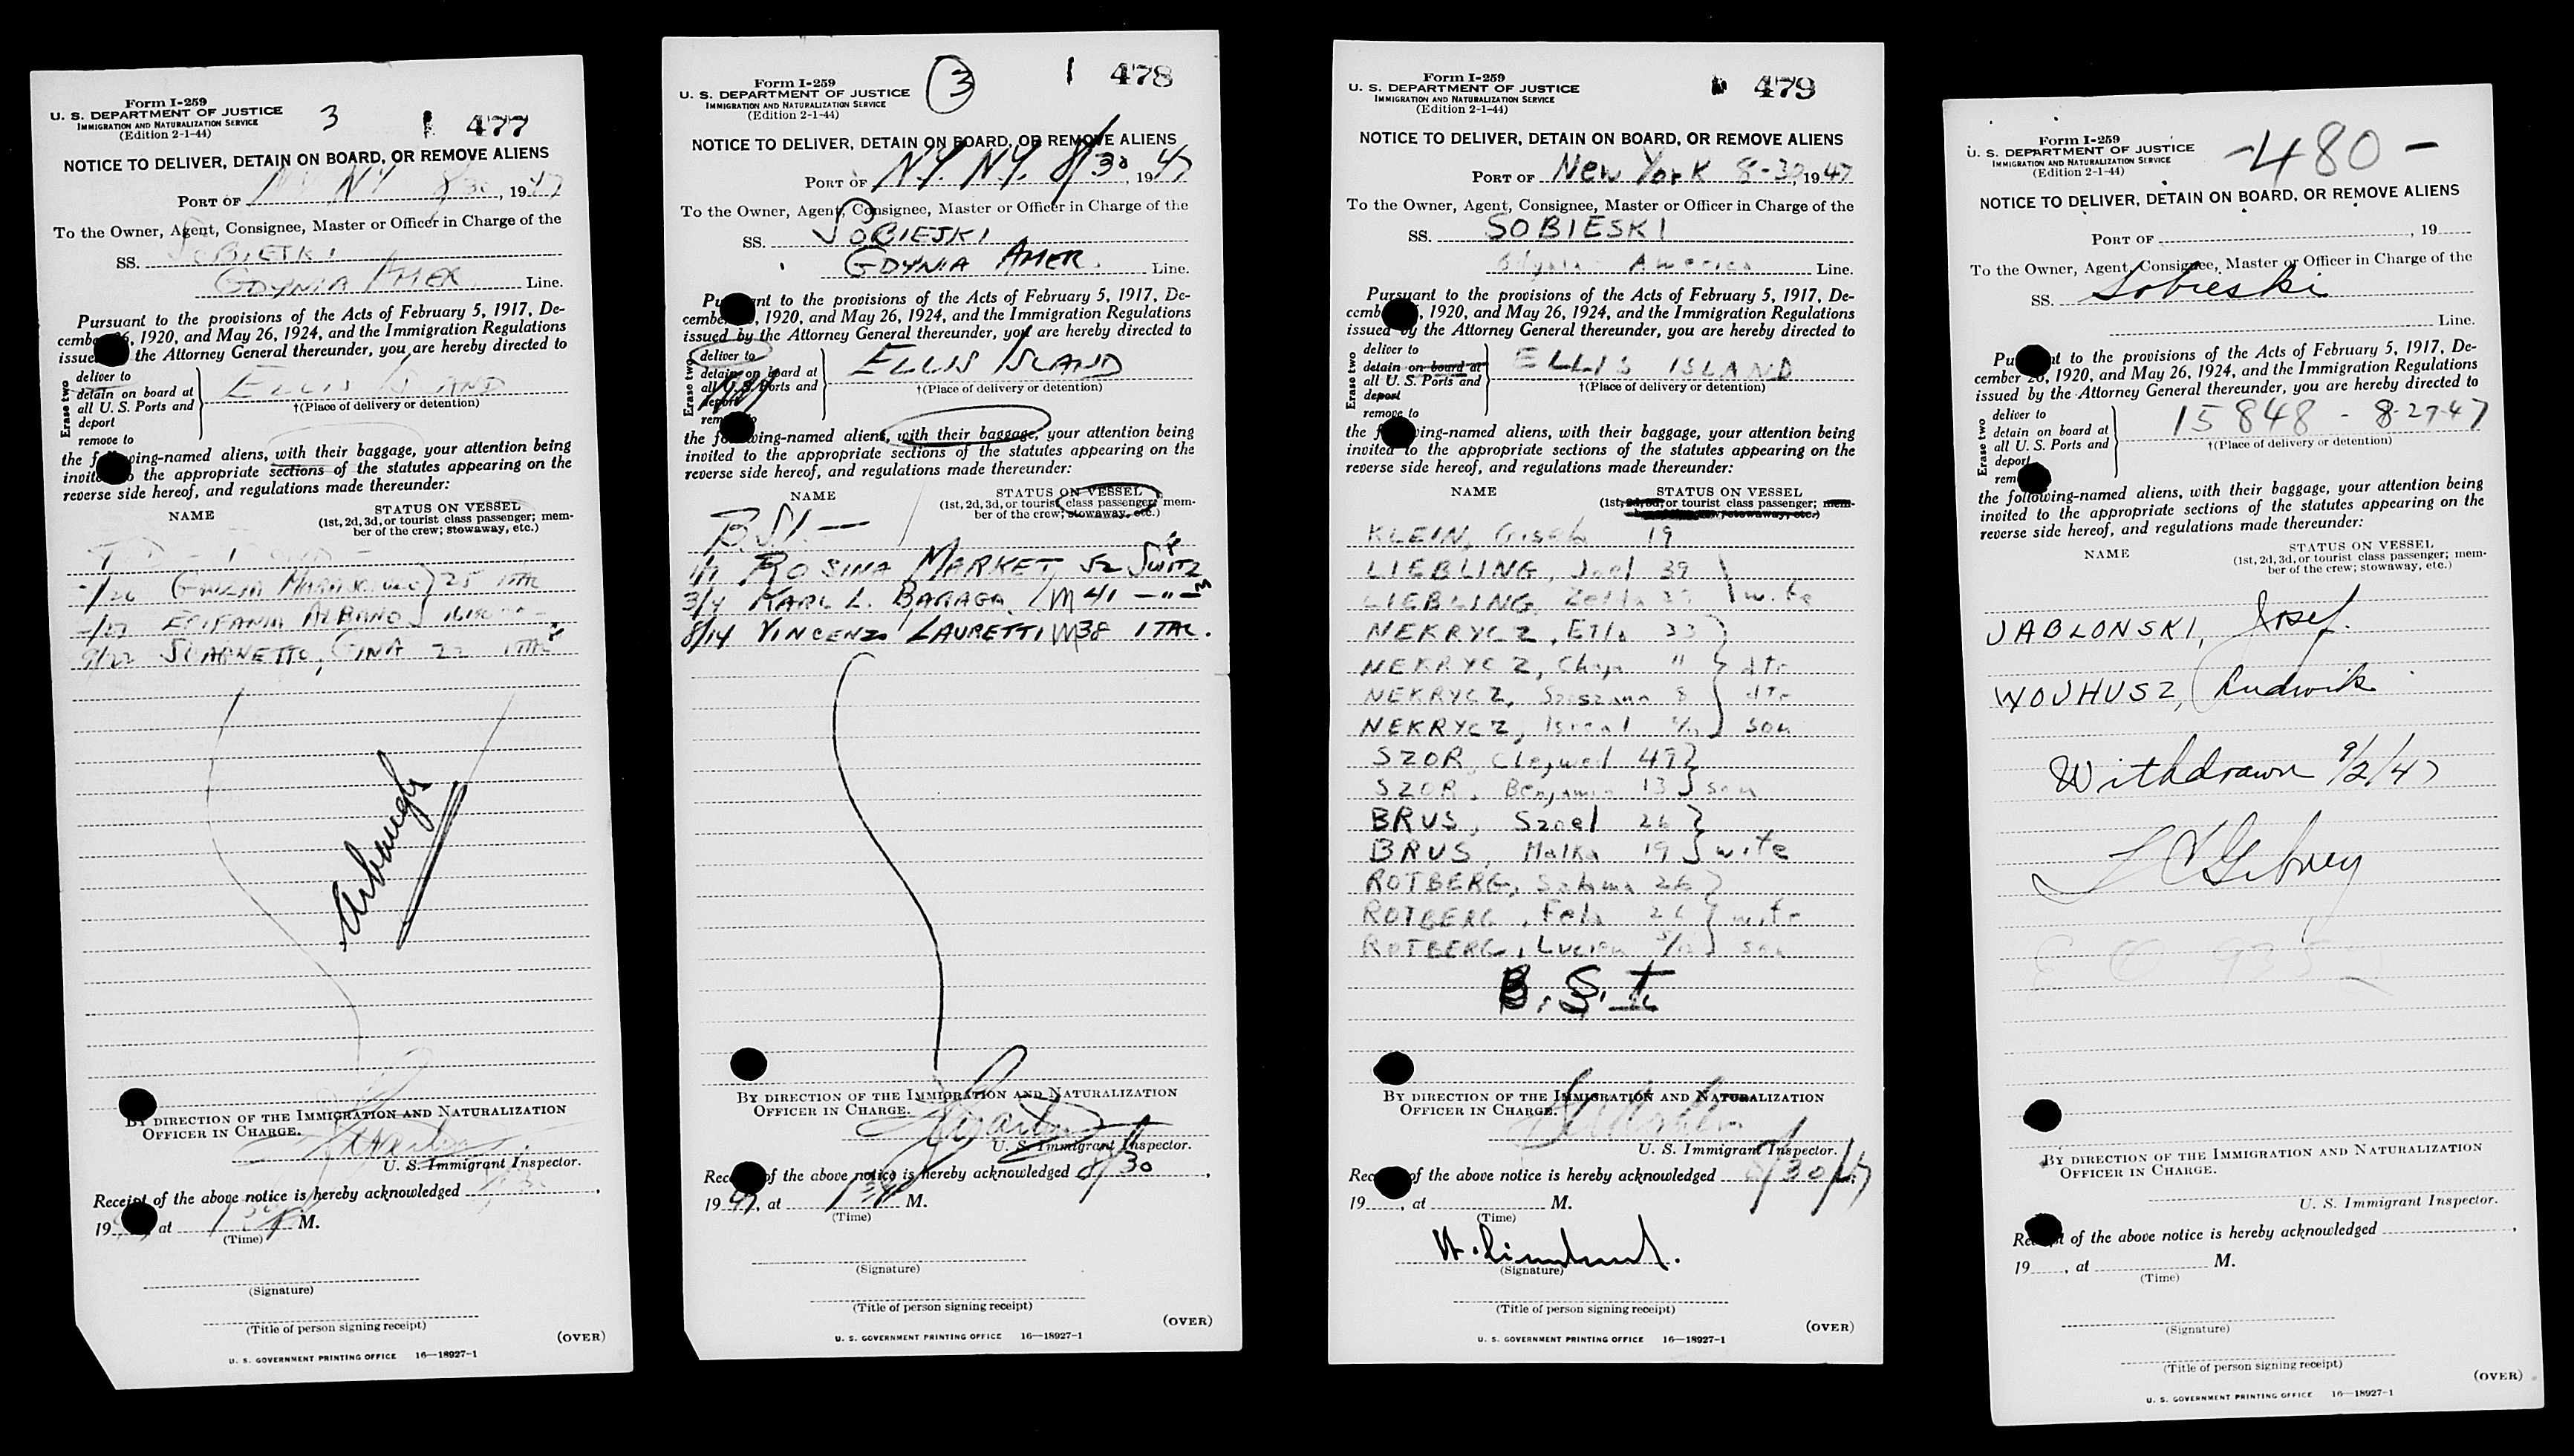 Form I-259
U. S. DEPARTMENT OF JUSTICE
IMMIGRATION AND NATURALIZATION SERVICE
(Edition 2-1-44)
3
477
NOTICE TO DELIVER, DETAIN ON BOARD, OR REMOVE ALIENS
PORT OF N.Y. N.Y. 8/30, 1947
To the Owner, Agent, Consignee, Master or Officer in Charge of the
SS. SOBIESKI
GDYNIA AMER. Line.
Pursuant to the provisions of the Acts of February 5, 1917, De-
cember 26, 1920, and May 26, 1924, and the Immigration Regulations
issued by the Attorney General thereunder, you are hereby directed to
Erase two
deliver to
detain on board at
all U. S. Ports and
deport
remove to
ELLIS ISLAND
†(Place of delivery or detention)
the following-named aliens, with their baggage, your attention being
invited to the appropriate sections of the statutes appearing on the
reverse side hereof, and regulations made thereunder:
NAME
STATUS ON VESSEL
(1st, 2d, 3d, or tourist class passenger; mem-
ber of the crew; stowaway, etc.)
25 ITAL
EPIFANIA ALBANO
9/22 GINA 22 ITAL
Arbaugh
BY DIRECTION OF THE IMMIGRATION AND NATURALIZATION
OFFICER IN CHARGE.
U. S. Immigrant Inspector.
Receipt of the above notice is hereby acknowledged
19 , at M.
(Time)
(Signature)
(Title of person signing receipt)
(OVER)
U. S. GOVERNMENT PRINTING OFFICE 16—18927-1
Form I-259
U. S. DEPARTMENT OF JUSTICE
IMMIGRATION AND NATURALIZATION SERVICE
(Edition 2-1-44)
3
478
NOTICE TO DELIVER, DETAIN ON BOARD, OR REMOVE ALIENS
PORT OF N.Y. N.Y. 8/30, 1947
To the Owner, Agent, Consignee, Master or Officer in Charge of the
SS. SOBIESKI
GDYNIA AMER. Line.
Pursuant to the provisions of the Acts of February 5, 1917, De-
cember 26, 1920, and May 26, 1924, and the Immigration Regulations
issued by the Attorney General thereunder, you are hereby directed to
Erase two
deliver to
detain on board at
all U. S. Ports and
deport
remove to
ELLIS ISLAND
†(Place of delivery or detention)
the following-named aliens, with their baggage, your attention being
invited to the appropriate sections of the statutes appearing on the
reverse side hereof, and regulations made thereunder:
NAME
STATUS ON VESSEL
(1st, 2d, 3d, or tourist class passenger; mem-
ber of the crew; stowaway, etc.)
B.S.I. —
1/7 ROSINA MARKET 52 SWITZ
3/4 KARL L. BARAGA M 41 — " —
8/14 VINCENZO LAURETTI M 38 ITAL.
BY DIRECTION OF THE IMMIGRATION AND NATURALIZATION
OFFICER IN CHARGE.
U. S. Immigrant Inspector.
Receipt of the above notice is hereby acknowledged 8/30,
1947, at M.
(Time)
(Signature)
(Title of person signing receipt)
(OVER)
U. S. GOVERNMENT PRINTING OFFICE 16—18927-1
Form I-259
U. S. DEPARTMENT OF JUSTICE
IMMIGRATION AND NATURALIZATION SERVICE
(Edition 2-1-44)
479
NOTICE TO DELIVER, DETAIN ON BOARD, OR REMOVE ALIENS
PORT OF New York 8-30, 1947
To the Owner, Agent, Consignee, Master or Officer in Charge of the
SS. SOBIESKI
Gdynia America Line.
Pursuant to the provisions of the Acts of February 5, 1917, De-
cember 26, 1920, and May 26, 1924, and the Immigration Regulations
issued by the Attorney General thereunder, you are hereby directed to
Erase two
deliver to
detain on board at
all U. S. Ports and
deport
remove to
ELLIS ISLAND
†(Place of delivery or detention)
the following-named aliens, with their baggage, your attention being
invited to the appropriate sections of the statutes appearing on the
reverse side hereof, and regulations made thereunder:
NAME
STATUS ON VESSEL
(1st, 2d, 3d, or tourist class passenger; mem-
KLEIN, 19
LIEBLING, Joel 39
LIEBLING, Zelda wife
NEKRYCZ, Etla 33
NEKRYCZ, Chaya " dtr
NEKRYCZ, 8 dtr
NEKRYCZ, Israel son
SZOR, 49
SZOR, Benjamin 13 son
BRUS, Szoel 26
BRUS, Malka 19 wife
ROTBERG, 26
ROTBERG, Fela 26 wife
ROTBERG, Lucian son
B.S.I.
BY DIRECTION OF THE IMMIGRATION AND NATURALIZATION
OFFICER IN CHARGE.
U. S. Immigrant Inspector.
Receipt of the above notice is hereby acknowledged 8/30/47
19 , at M.
(Time)
(Signature)
(Title of person signing receipt)
(OVER)
U. S. GOVERNMENT PRINTING OFFICE 16—18927-1
Form I-259
U. S. DEPARTMENT OF JUSTICE
IMMIGRATION AND NATURALIZATION SERVICE
(Edition 2-1-44)
-480-
NOTICE TO DELIVER, DETAIN ON BOARD, OR REMOVE ALIENS
PORT OF , 19
To the Owner, Agent, Consignee, Master or Officer in Charge of the
SS. Sobieski
Line.
Pursuant to the provisions of the Acts of February 5, 1917, De-
cember 26, 1920, and May 26, 1924, and the Immigration Regulations
issued by the Attorney General thereunder, you are hereby directed to
Erase two
deliver to
detain on board at
all U. S. Ports and
deport
remove to
15848 - 8-27-47
†(Place of delivery or detention)
the following-named aliens, with their baggage, your attention being
invited to the appropriate sections of the statutes appearing on the
reverse side hereof, and regulations made thereunder:
NAME
STATUS ON VESSEL
(1st, 2d, 3d, or tourist class passenger; mem-
ber of the crew; stowaway, etc.)
JABLONSKI, Josef.
WOJHUSZ, Ludwik
Withdrawn 9/2/47
BY DIRECTION OF THE IMMIGRATION AND NATURALIZATION
OFFICER IN CHARGE.
U. S. Immigrant Inspector.
Receipt of the above notice is hereby acknowledged ,
19 , at M.
(Time)
(Signature)
(Title of person signing receipt)
(OVER)
U. S. GOVERNMENT PRINTING OFFICE 16—18927-1